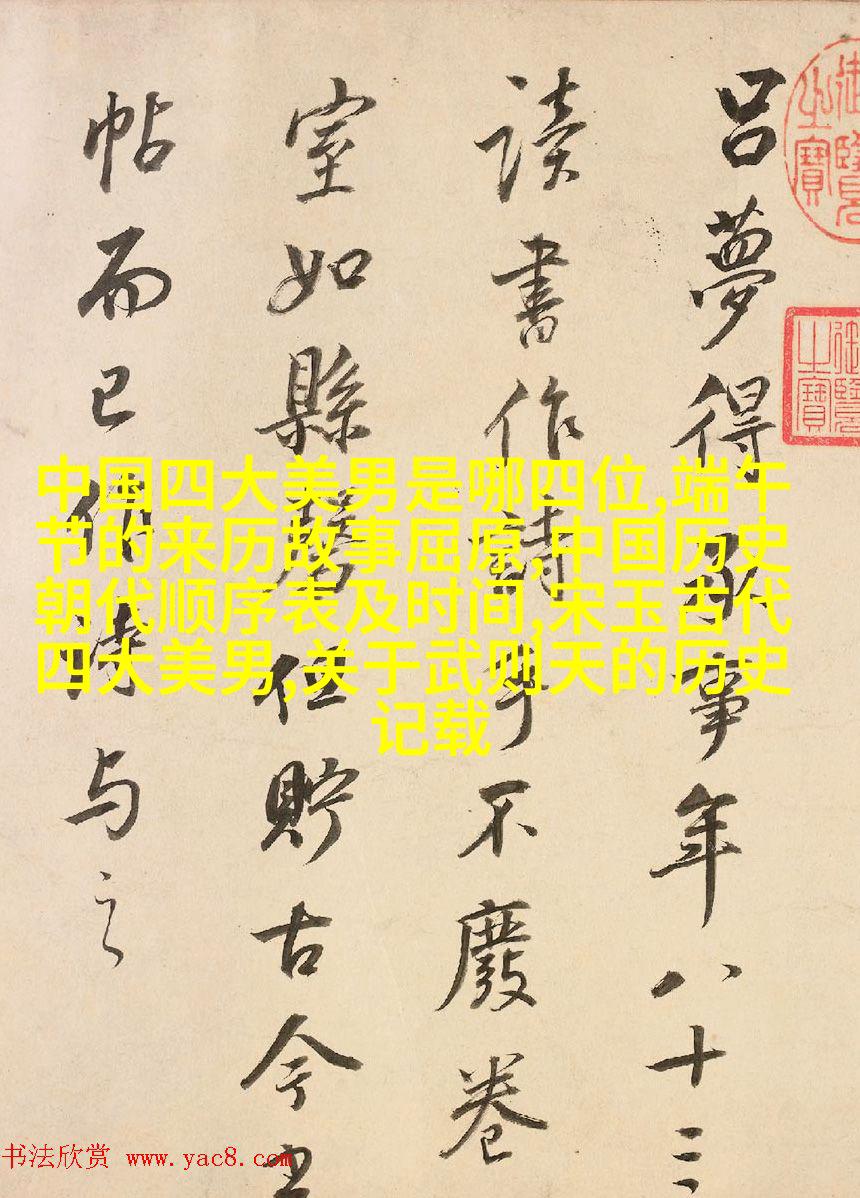 呂夢得承事年八十三
读書作詩手不廢卷
室如縣磬但貯古今
帖而已作诗与之
御覽之寶
御覽之寶
中国四大美男是哪四位,端午
节的来历故事屈原,中国历史
朝代顺序表及时间,宋玉古代
四大美男,关于武则天的历史
记载
书法欣赏 www.yac8.com